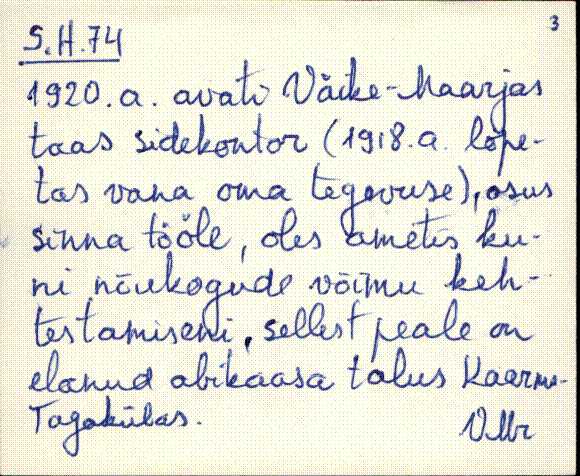 3
S.H.74
1920.a. avati Väike-Maarjas
taas sidekontor (1918.a. lõpe-
tas vana oma tegevuse), asus
sinna tööle, oles ametis ku-
ni nõukogude võimu keh-
testamiseni, sellest peale on
elanud abikaasa talus Kaarma-
Tagakülas.
VMr